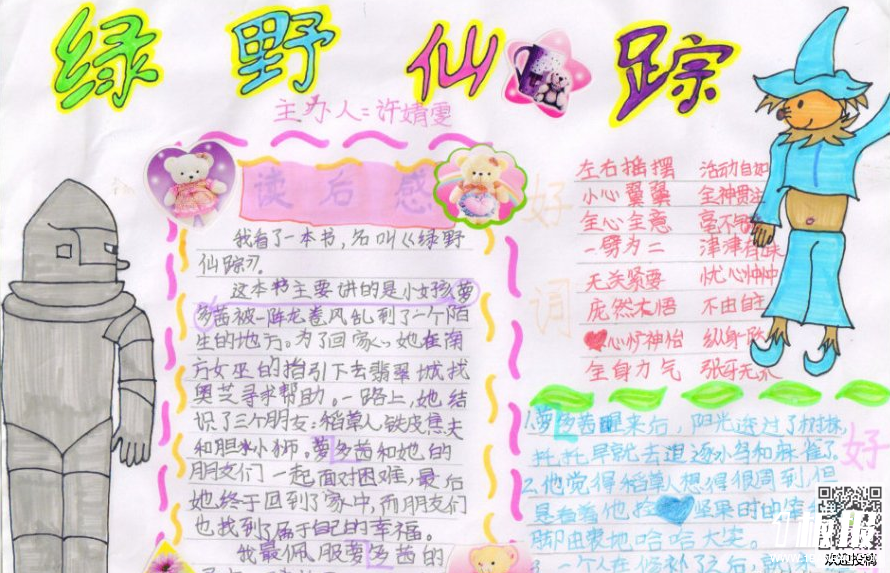 绿野仙踪
主办人:许婧雯
读后感
我看了一本书,名叫《绿野
仙踪》。
这本书主要讲的是小女孩萝
多茜被一阵龙卷风乱到了一个陌
生的地方。为了回家,她在南
方女巫的指引下去翡翠城找
奥芝寻求帮助。一路上,她结
识了三个朋友:稻草人铁皮焦夫
和胆小狮。萝多茜和她的
朋友们一起面对困难,最后
她终于回到了家中,而朋友们
也找到了属于自己的幸福。
我最佩服萝多茜的
好词
左右摇摆 活动自如
小心翼翼 全神贯注
全心全意 毫不
一劈为二 津津有味
无关紧要 忧心忡忡
庞然大悟 不由自主
心旷神怡 纵身一
全身力气 张牙无爪
1.萝多茜醒来后,阳光透过了树林,
托托早就去追逐小鸟和麻雀了。
2.他觉得稻草人想得很周到,但
是看着他捡坚果时的
由衷地哈哈大笑。
好
欢迎投稿